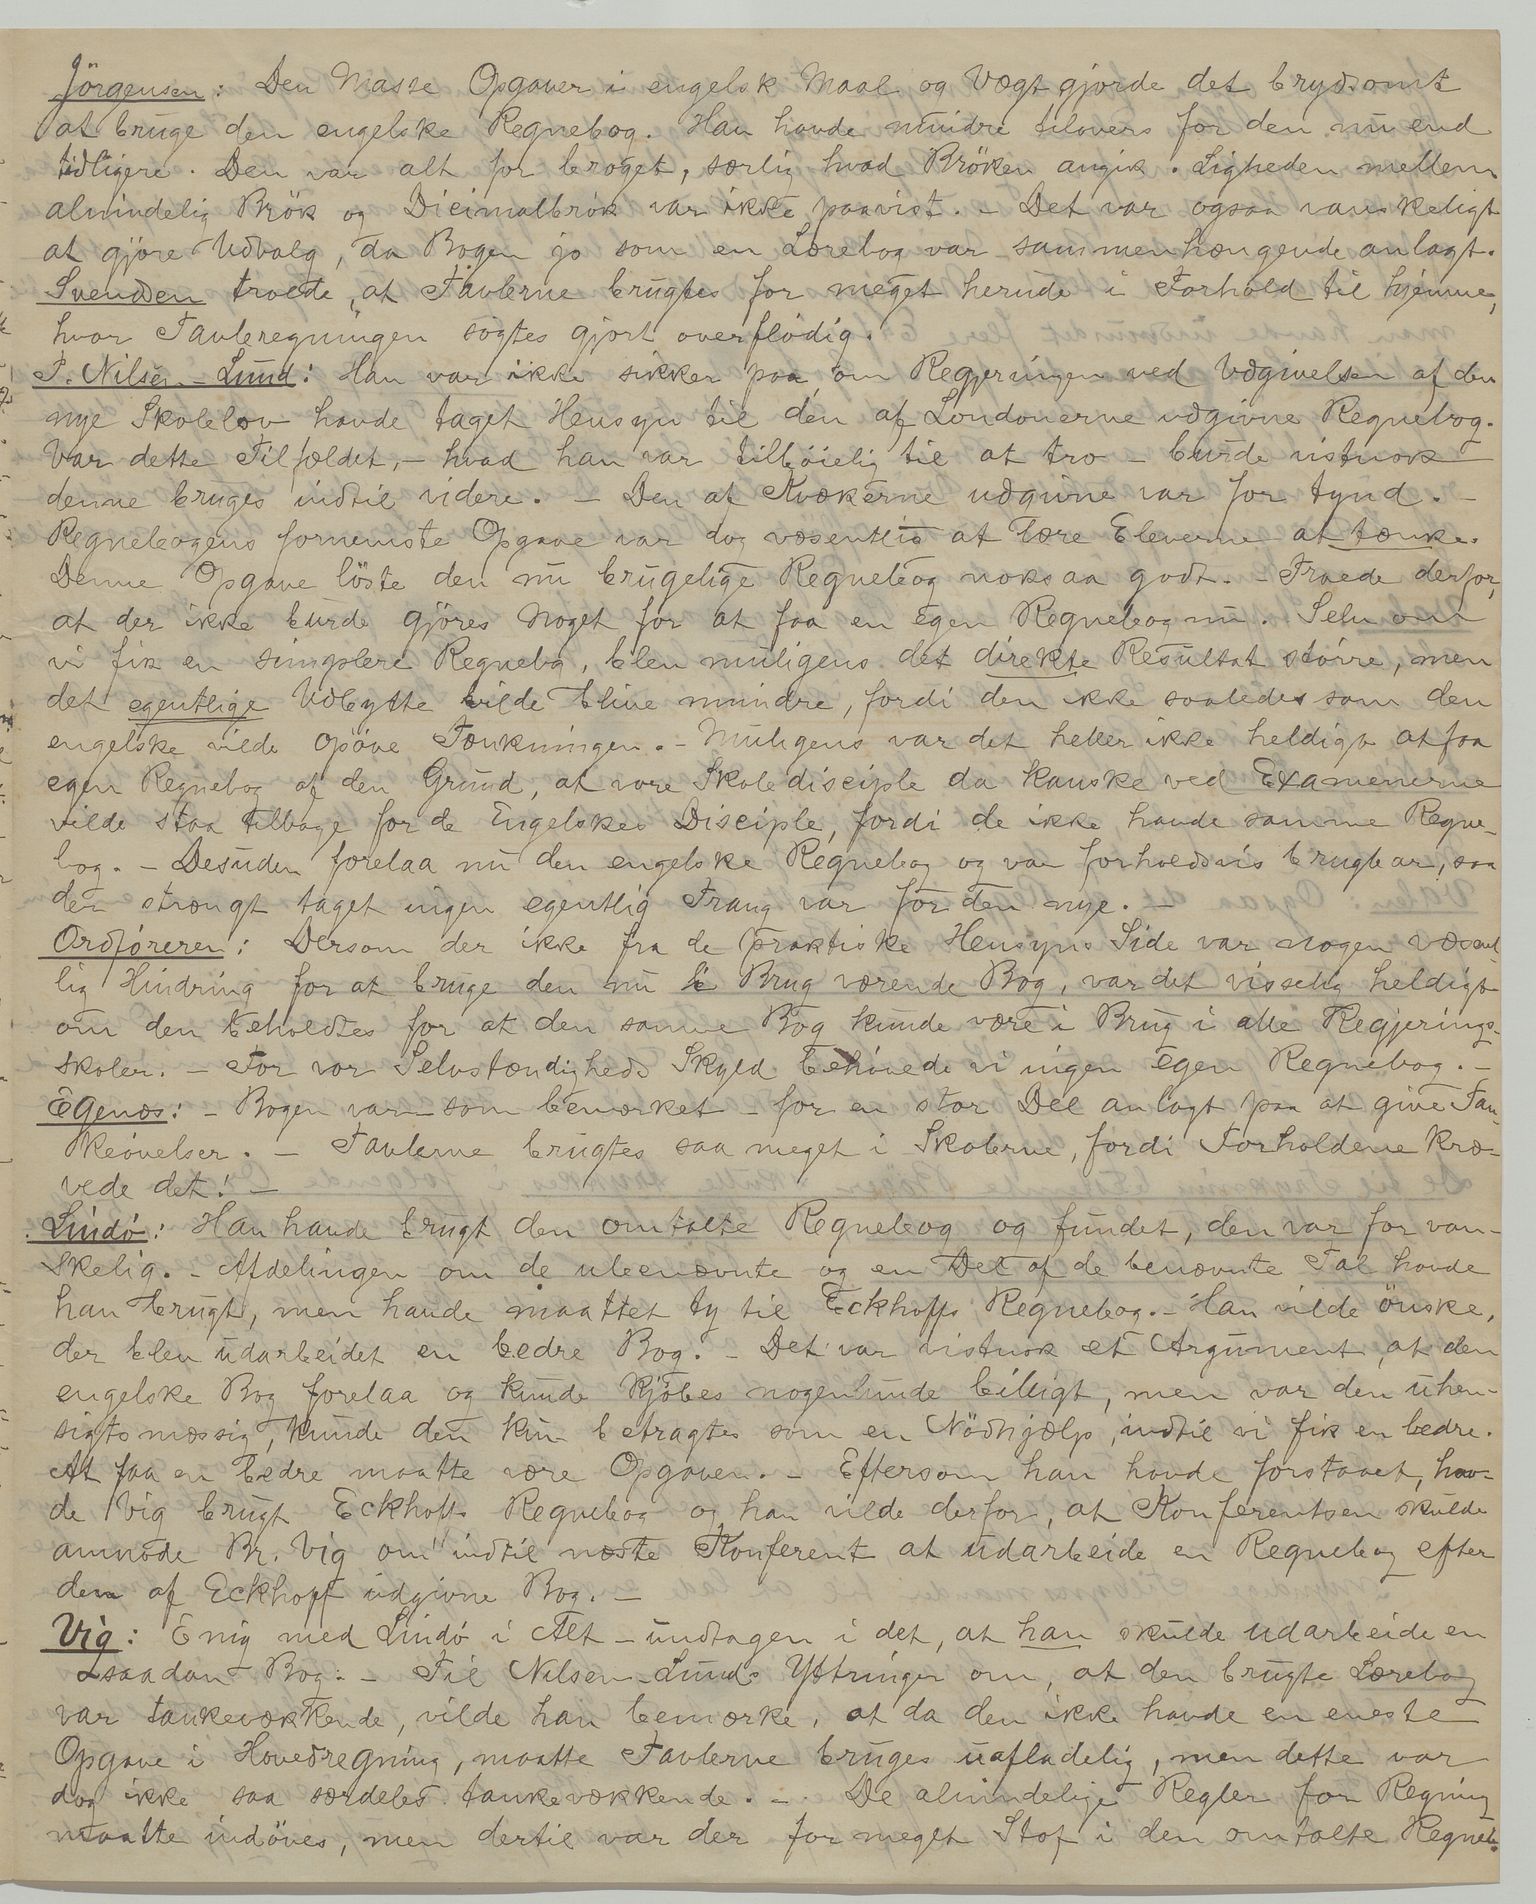 Jörgensen: Den Masse Opgaver i engelsk Maal og Vægt gjorde det brydsomt
at bruge den engelske Regnebog. Han havde mindre tilovers for den nu end
tidligere. Den var alt for broget, særlig hvad Bröken angik. Ligheden mellem
almindelig Brök og Dicimalbrök var ikke paavist. – Det var ogsaa vanskeligt
at gjöre Udvalg, da Bogen jo som en Lærebog var sammenhængende anlagt.
Svendsen troede, at Tavlerne brugtes for meget herude i Forhold til hjemme,
hvor Tavleregningen sögtes gjort overflödig.
T. Nilsen-Lund: Han var ikke sikker paa, om Regjeringen ved Udgivelsen af den
nye Skolelov havde taget Hensyn til den af Londonerne udgivne Regnebog.
Var dette Tilfældet, – hvad han var tilböielig til at tro – burde vistnok
denne bruges indtil videre. – Den af Kvækerne udgivne var for tynd. –
Regnebogens fornemste Opgave var dog væsentlig at lære Eleverne at tænke.
Denne Opgave löste den nu brugelige Regnebog noksaa godt. – Troede derfor,
at der ikke burde gjöres noget for at faa en egen Regnebog nu. Selv om
vi fik en simplere Regnebog, blev muligens det direkte Resultat större, men
det egentlige Udbytte vilde blive mindre, fordi den ikke saaledes som den
engelske vilde opöve Tænkningen. – Muligens var det heller ikke heldigt at faa
egen Regnebog af den Grund, at vore Skoledisciple da kanske ved Examenerne
vilde staa tilbage for de Engelskes Disciple, fordi de ikke havde samme Regne-
bog. – Desuden forelaa nu den engelske Regnebog og var forholdsvis brugbar, saa
der strængt taget ingen egentlig Trang var for den nye. –
Ordföreren: Dersom der ikke fra de praktiske Hensyns Side var nogen væsent-
lig Hindring for at bruge den nu i Brug værende Bog, var det visselig heldigt
om den beholdtes for at den samme Bog kunde være i Brug i alle Regjerings-
skoler. – For vor Selvstændigheds Skyld behövede vi ingen egen Regnebog. –
Egenæs: – Bogen var – som bemærket – for en stor Del anlagt paa at give Tan-
keövelser. – Tavlerne brugtes saa meget i Skolerne, fordi Forholdene kræ-
vede det! –
Lindö: Han havde brugt den omtalte Regnebog og fundet, den var for van-
skelig. – Afdelingen om de ubenævnte og en Del af de benævnte Tal havde
han brugt, men havde maattet ty til Eckhoffs Regnebog. – Han vilde önske,
der blev udarbeidet en bedre Bog. – Det var vistnok et Argument, at den
engelske Bog forelaa og kunde kjöbes nogenlunde billigt, men var den uhen-
sigtsmæssig, kunde den kun betragtes som en Nödhjælp, indtil vi fik en bedre.
At faa en bedre maatte være Opgaven. – Eftersom han havde forstaaet, hav-
de Vig brugt Eckhoffs Regnebog og han vilde derfor, at Konferentsen skulde
anmode Br. Vig om indtil næste Konferent at udarbeide en Regnebog efter
den af Eckhoff udgivne Bog. –
Vig: Enig med Lindö i Alt – undtagen i det, at han skulde udarbeide en
saadan Bog. – Til Nilsen-Lunds Yttringer om, at den brugte Lærebog
var tankevækkende, vilde han bemærke, at da den ikke havde en eneste
Opgave i Hovedregning, maatte Tavlerne bruges uafladelig, men dette var
dog ikke saa særdeles tankevækkende. – De almindelige Regler for Regning
maatte indöves, men dertil var der for meget Stof i den omtalte Regneb.